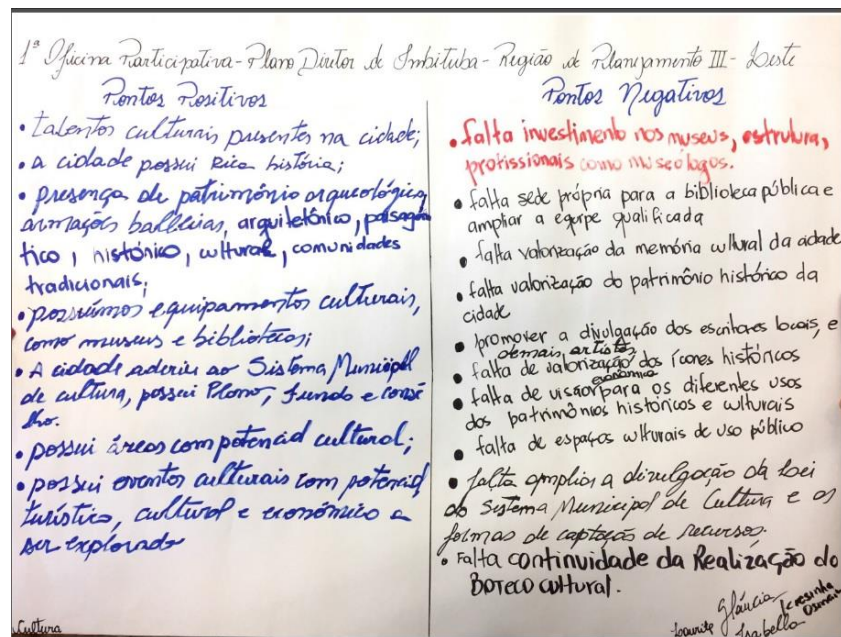 1ª Oficina Participativa - Plano Diretor de Imbituba - Região de Planejamento III - Leste
Pontos Positivos
• talentos culturais presentes na cidade;
• a cidade possui Rica história;
• presença de patrimônio arqueológico,
armações baleeiras, arquitetônico, paisagís
tico, histórico, cultural, comunidades
tradicionais;
• possuímos equipamentos culturais,
como museus e bibliotecas;
• A cidade aderiu ao Sistema Municipal
de cultura, possui Plano, fundo e conse
lho.
• possui áreas com potencial cultural;
• possui eventos culturais com potencial
turístico, cultural e econômico a
ser explorado
Cultura
Pontos Negativos
• falta investimento nos museus, estrutura,
profissionais como museólogos.
• falta sede própria para a biblioteca pública e
ampliar a equipe qualificada
• falta valorização da memória cultural da cidade
• falta valorização do patrimônio histórico da
cidade
• promover a divulgação dos escritores locais, e
demais artistas
• falta de valorização dos ícones históricos
• falta de visão econômica para os diferentes usos
dos patrimônios históricos e culturais
• falta de espaços culturais de uso público
• falta ampliar a divulgação da Lei
do Sistema Municipal de Cultura e as
formas de captação de recursos.
• Falta continuidade da Realização do
Boteco cultural.
Gláucia Teresinha
Isabella